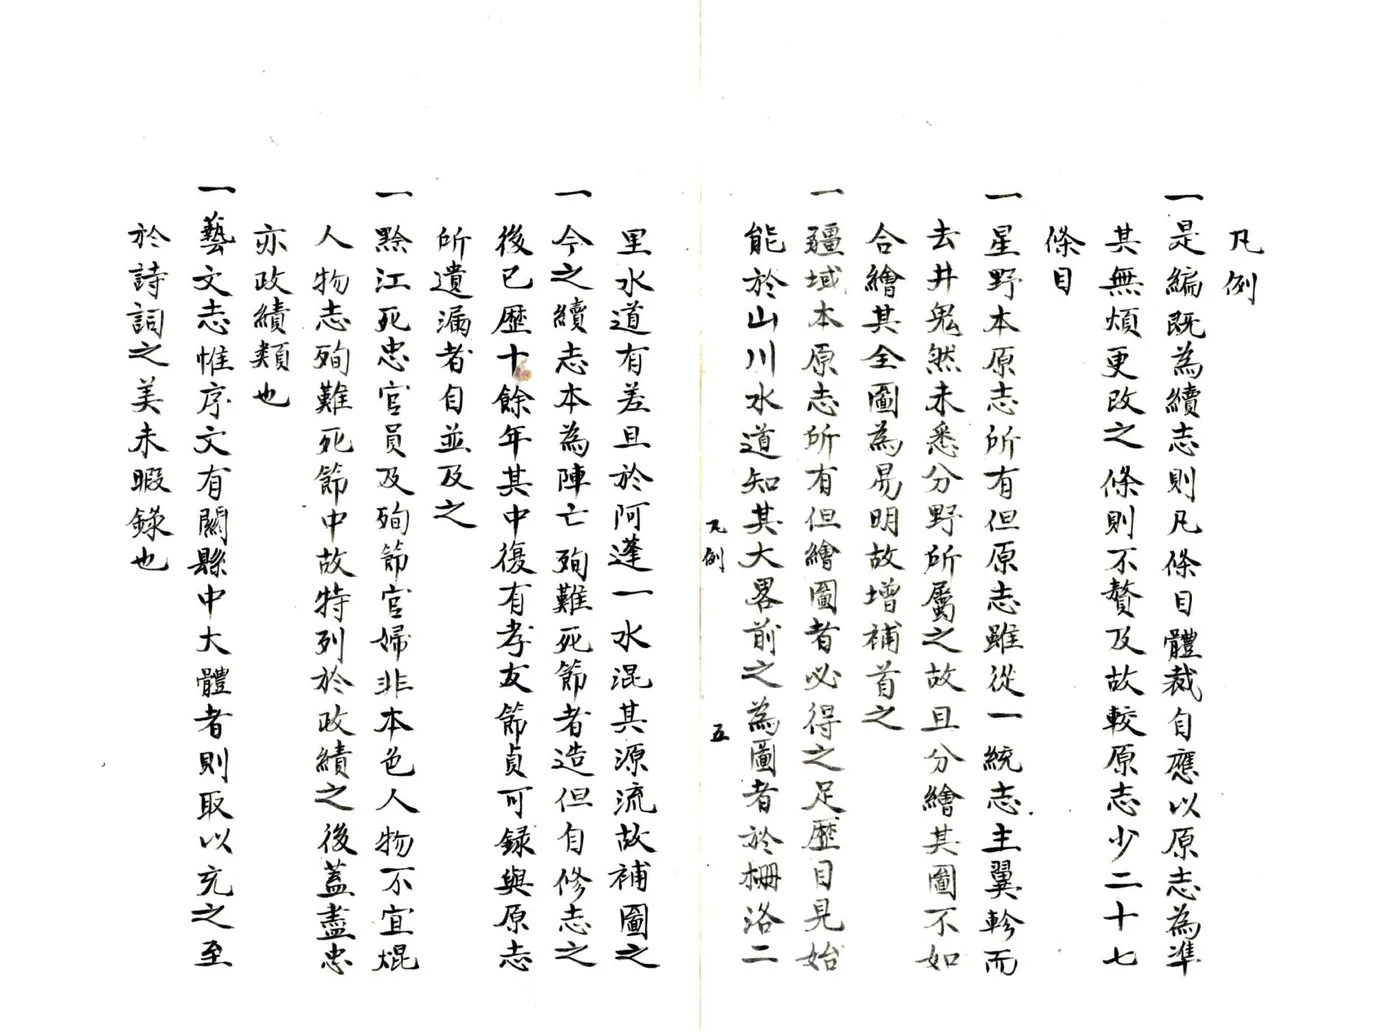 凡例
一是編既為續志則凡條目體裁自應以原志為準
其無煩更改之條則不贅及故較原志少二十七
條目
一星野本原志所有但原志雖從一統志主翼軫而
去井鬼然未悉分野所屬之故且分繪其圖不如
合繪其全圖為易明故增補首之
一疆域本原志所有但繪圖者必得之足歷目見始
能於山川水道知其大畧前之為圖者於柵洛二
凡例
五
里水道有差且於阿蓬一水混其源流故補圖之
一今之續志本為陣亡殉難死節者造但自修志之
後已歷十餘年其中復有孝友節貞可錄與原志
所遺漏者自並及之
一黔江死忠官員及殉節官婦非本色人物不宜焜
人物志殉難死節中故特列於政績之後蓋盡忠
亦政績類也
一藝文志惟序文有關縣中大體者則取以充之至
於詩詞之美未暇錄也